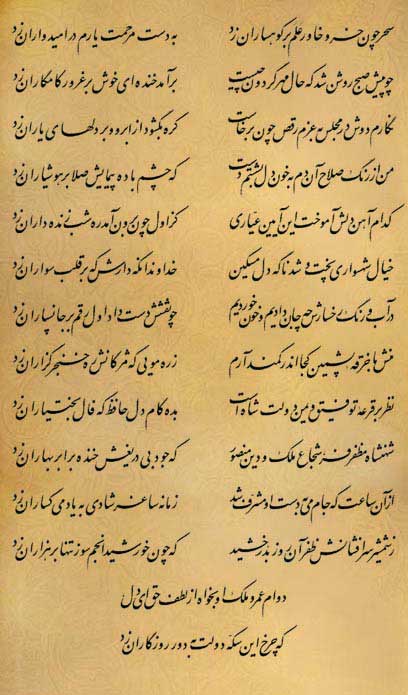 سحر چون خسرو خاور علم بر کوهساران زد به دست مرحمت یارم در امیدواران زد
چو پیش صبح روشن شد که حال مهر گردون چیست برآمد خنده‌ای خوش بر غرور کامکاران زد
نگارم دوش در مجلس به عزم رقص چون برخاست گره بگشود از ابرو و بر دلهای یاران زد
من از رنگ صلاح آن دم به خون دل بشستم دست که چشم باده پیمایش صلا بر هوشیاران زد
کدام آهن دلش آموخت این آیین عیاری کز اول چون برون آمد ره شب زنده داران زد
خیال شهسواری پخت و شد ناگه دل مسکین خداوندا نگه دارش که بر قلب سواران زد
در آب و رنگ رخسارش چه جان دادیم و خون خوردیم چو نقشش دست داد اول رقم بر جانسپاران زد
منش با خرقه پشمین کجا اندر کمند آرم زره مویی که مژگانش ره خنجر گزاران زد
نظر بر قرعه توفیق و یمن دولت شاه است بده کام دل حافظ که فال بختیاران زد
شهنشاه مظفر فر شجاع ملک و دین منصور که جود بی دریغش خنده بر ابر بهاران زد
از آن ساعت که جام می به دست او مشرف شد زمانه ساغر شادی به یاد میگساران زد
ز شمشیر سرافشانش ظفر آن روز بدرخشید که چون خورشید انجم سوز تنها بر هزاران زد
دوام عمر و ملک او بخواه از لطف حق ای دل
که چرخ این سکه دولت به دور روزگاران زد